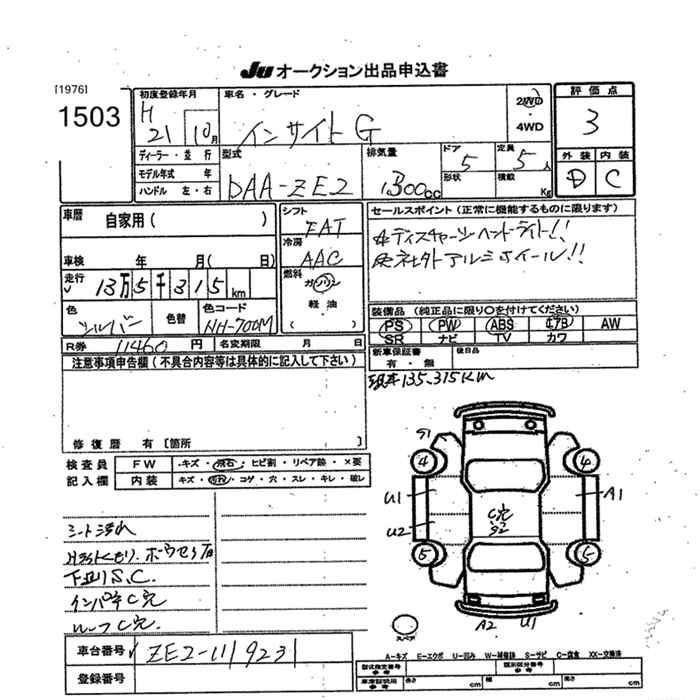 JU オークション出品申込書
[1976]
1503
初度登録年月
H
21 10月
車名・グレード
インサイト G
2WD
・
4WD
評価点
3
外装 内装
D C
ディーラー・並行
モデル年式 年
ハンドル 左・右
型式
DAA-ZE2
排気量
1300cc
ドア
5
定員
5人
形状
積載
Kg
車歴
自家用 ( )
シフト
FAT
冷房
AAC
燃料
ガソリン
・
軽油
( )
セールスポイント (正常に機能するものに限ります)
ディスチャージヘッドライト!!
社外アルミホイール!!
車検 年 月 ( 日)
走行
13万5千315km
色
シルバー
色替
色コード
NH-700M
装備品 (純正品に限り○を付けてください)
PS PW ABS エアB AW
SR ナビ TV カワ
R券 11460 円 名変期限 月 日
新車保証書
有・無
後日品
注意事項申告欄 (不具合内容等は具体的に記入して下さい)
現本 135,315Km
修復歴 有 [箇所 ]
検査員
記入欄
FW ・キズ・飛石・ヒビ割・リペア跡・×要
内装 キズ・汚れ・コゲ・穴・スレ・キレ・破レ
シート汚れ
下回りS.C.
インパネC穴
ルーフC穴
G1
4 4
U1 A1
U2
C穴
S2
5 5
スペア
A2 U1
A-キズ E-エクボ U-凹み W-補修跡 S-サビ C-腐食 XX-交換済
車台番号 ZE2-1119231
登録番号
型式指定番号
参考
類別区分番号
参考
車庫証明用
参考
長さ cm 幅 cm 高さ cm